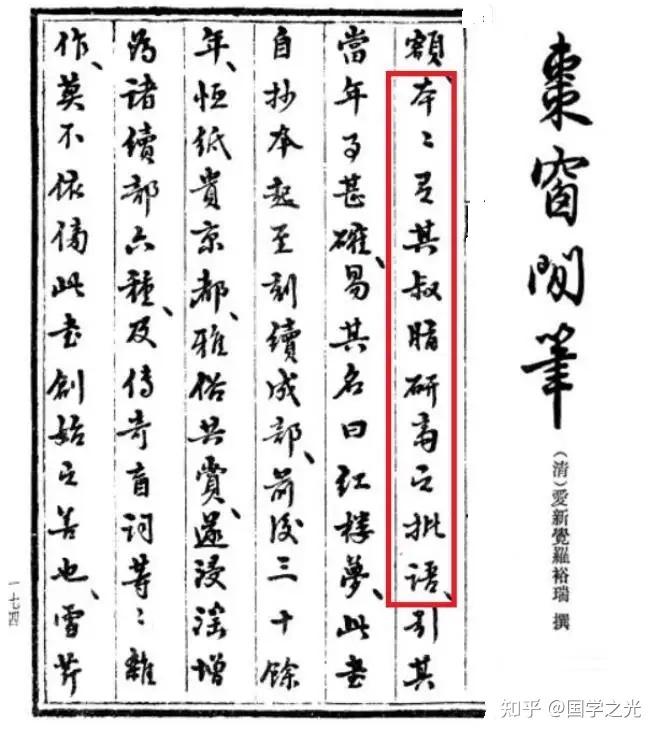 棗窗閒筆
（清）愛新覺羅裕瑞 撰
額、本〻有其叔脂研齋之批語、引其
當年事甚確、易其名曰紅樓夢、此書
自抄本起至刻續成部、前後三十餘
年、恒紙貴京都、雅俗共賞、遂浸淫增
為諸續部六種、及傳奇盲詞等〻雜
作、莫不依傍此書創始之善也、雪芹
一七四
知乎 @国学之光